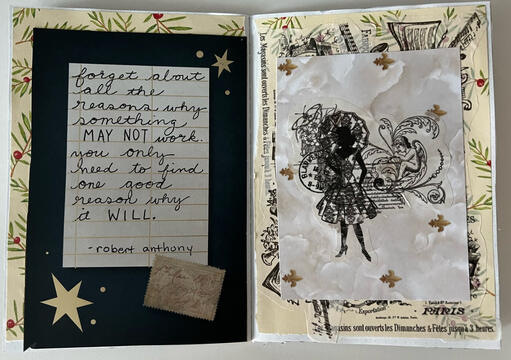 forget about
all the
reasons why
something
MAY NOT work.
you only
need to find
one good
reason why
it WILL.
-robert anthony
Les Magasins sont ouverts les Dimanches & Fêtes jusqu'à 3 heures
PARIS
Exportation
Magasins sont ouverts les Dimanches & Fêtes jusqu'à 3 heures.